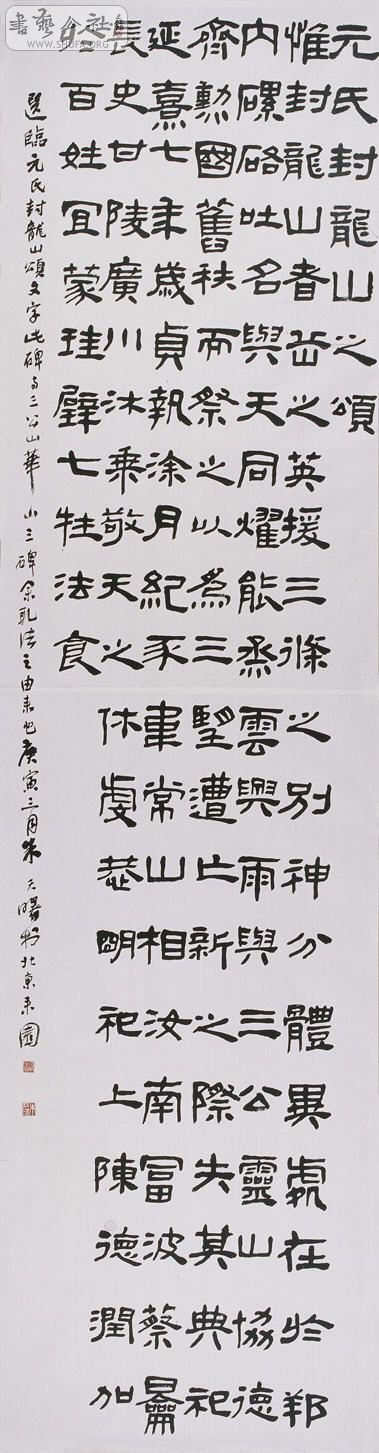 書藝公社
WWW.SHUFA.ORG
元氏封龍山之頌
惟封龍山者岳之英援三條之別神分體異處在於邦
內磥硌吐名與天同燿能烝雲興雨與三公靈山協德
齊勳國舊秩而祭之以為三望遭亡新之際失其典祀
延熹七年歲貞執涂月紀豕韋常山相汝南富波蔡
長史甘陵廣川沐乘敬天之休虔恭明祀上陳德潤加
於百姓宜蒙珪璧七牲法食
選臨元氏封龍山頌文字此碑與三公山華山三碑余取法之由來也庚寅三月朱天曙於北京